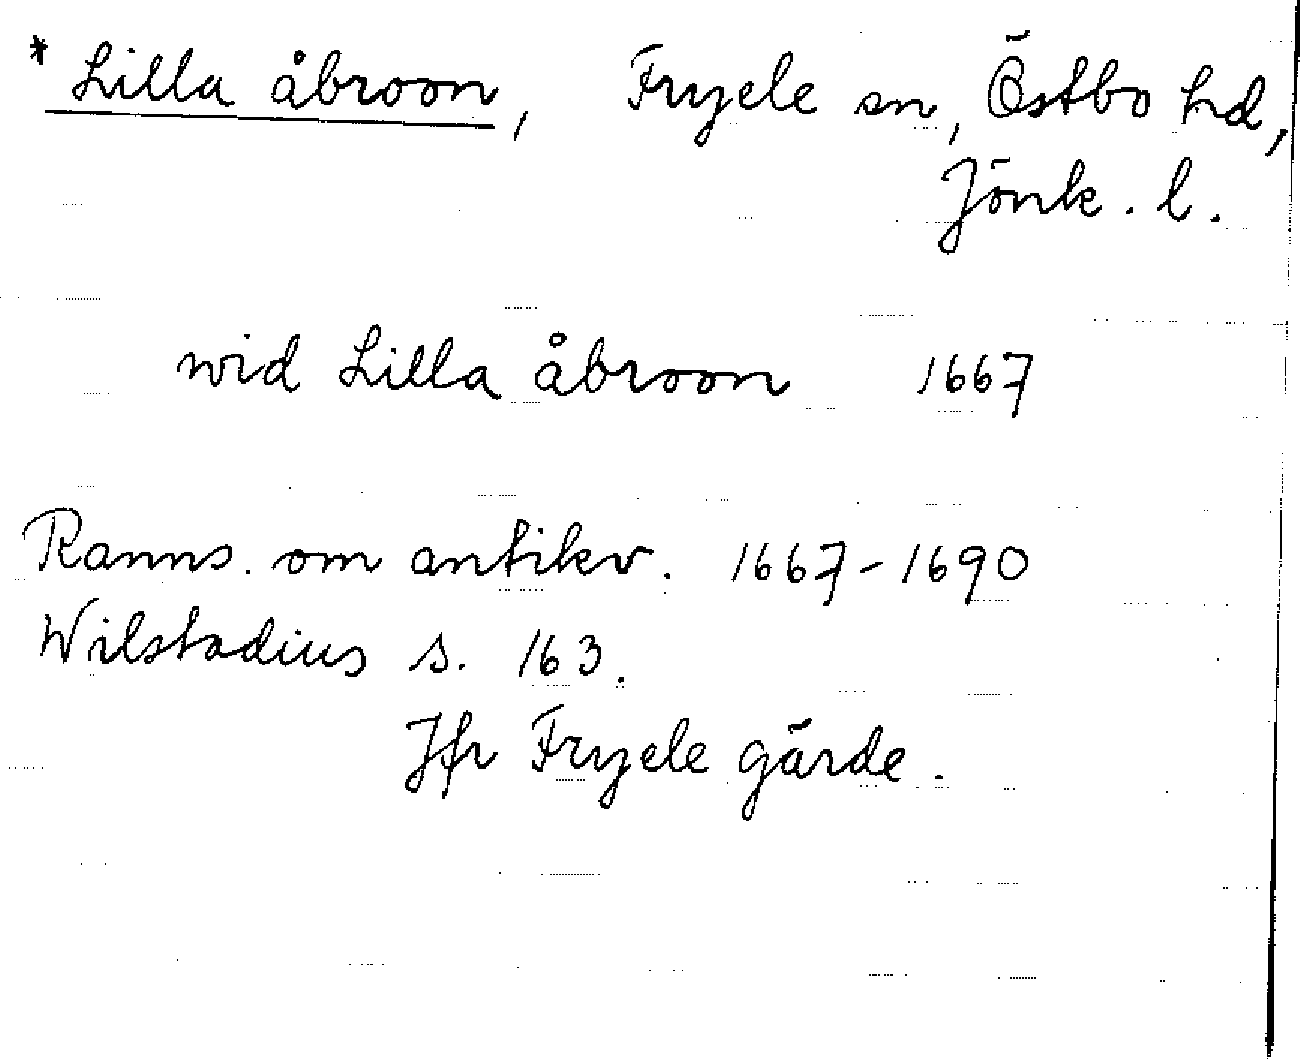 * Lilla åbroon, Fryele sn, Östbo hd,
Jönk. l.
wid Lilla åbroon 1667
Ranns. om antikv. 1667-1690
Wilstadius s. 163.
Jfr Fryele gärde.